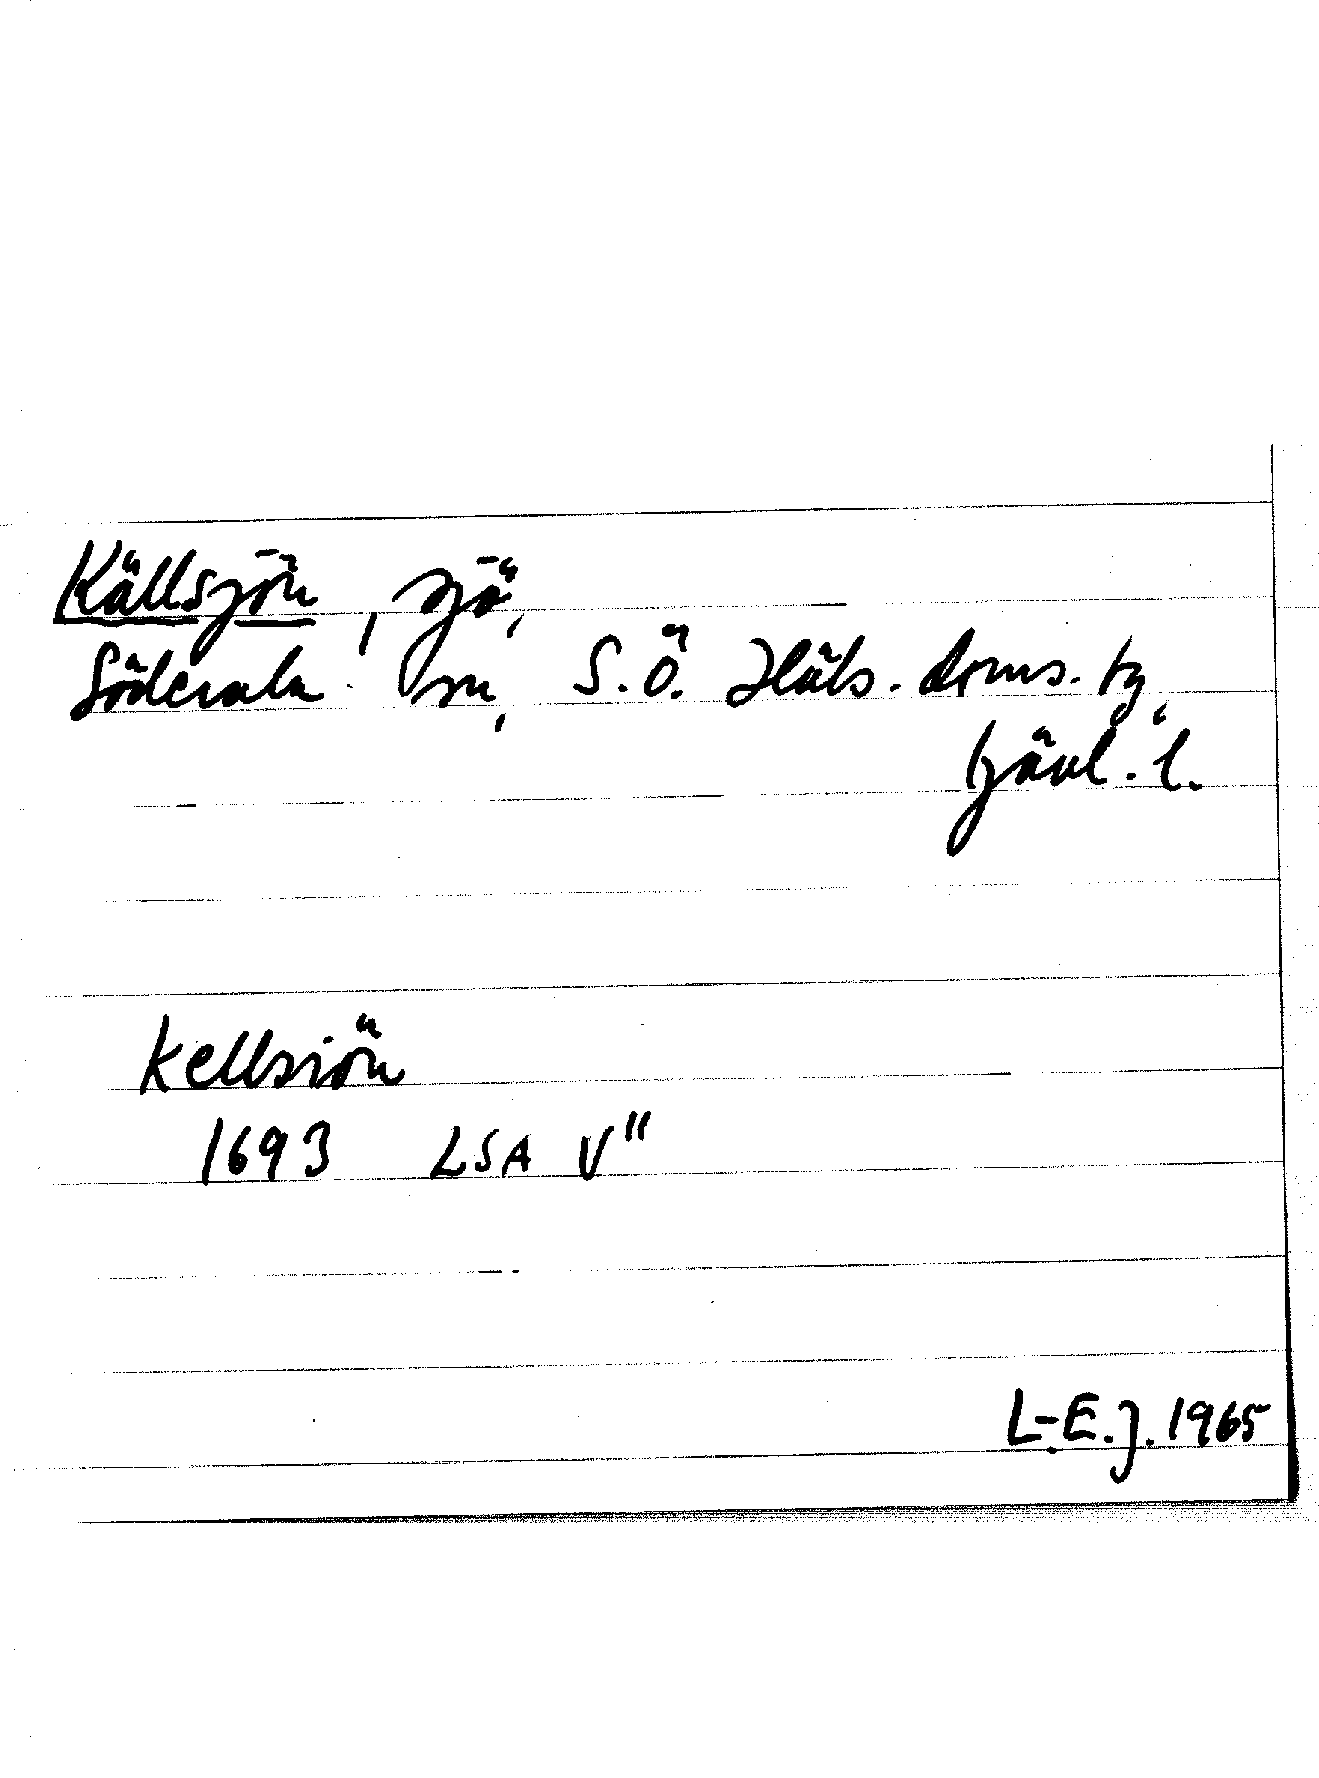 Källsjön, sjö,
Söderala sn, S.Ö. Häls. doms.,
Gävl. l.
Kellsiön
1693 LSA V"
L-E.J. 1965